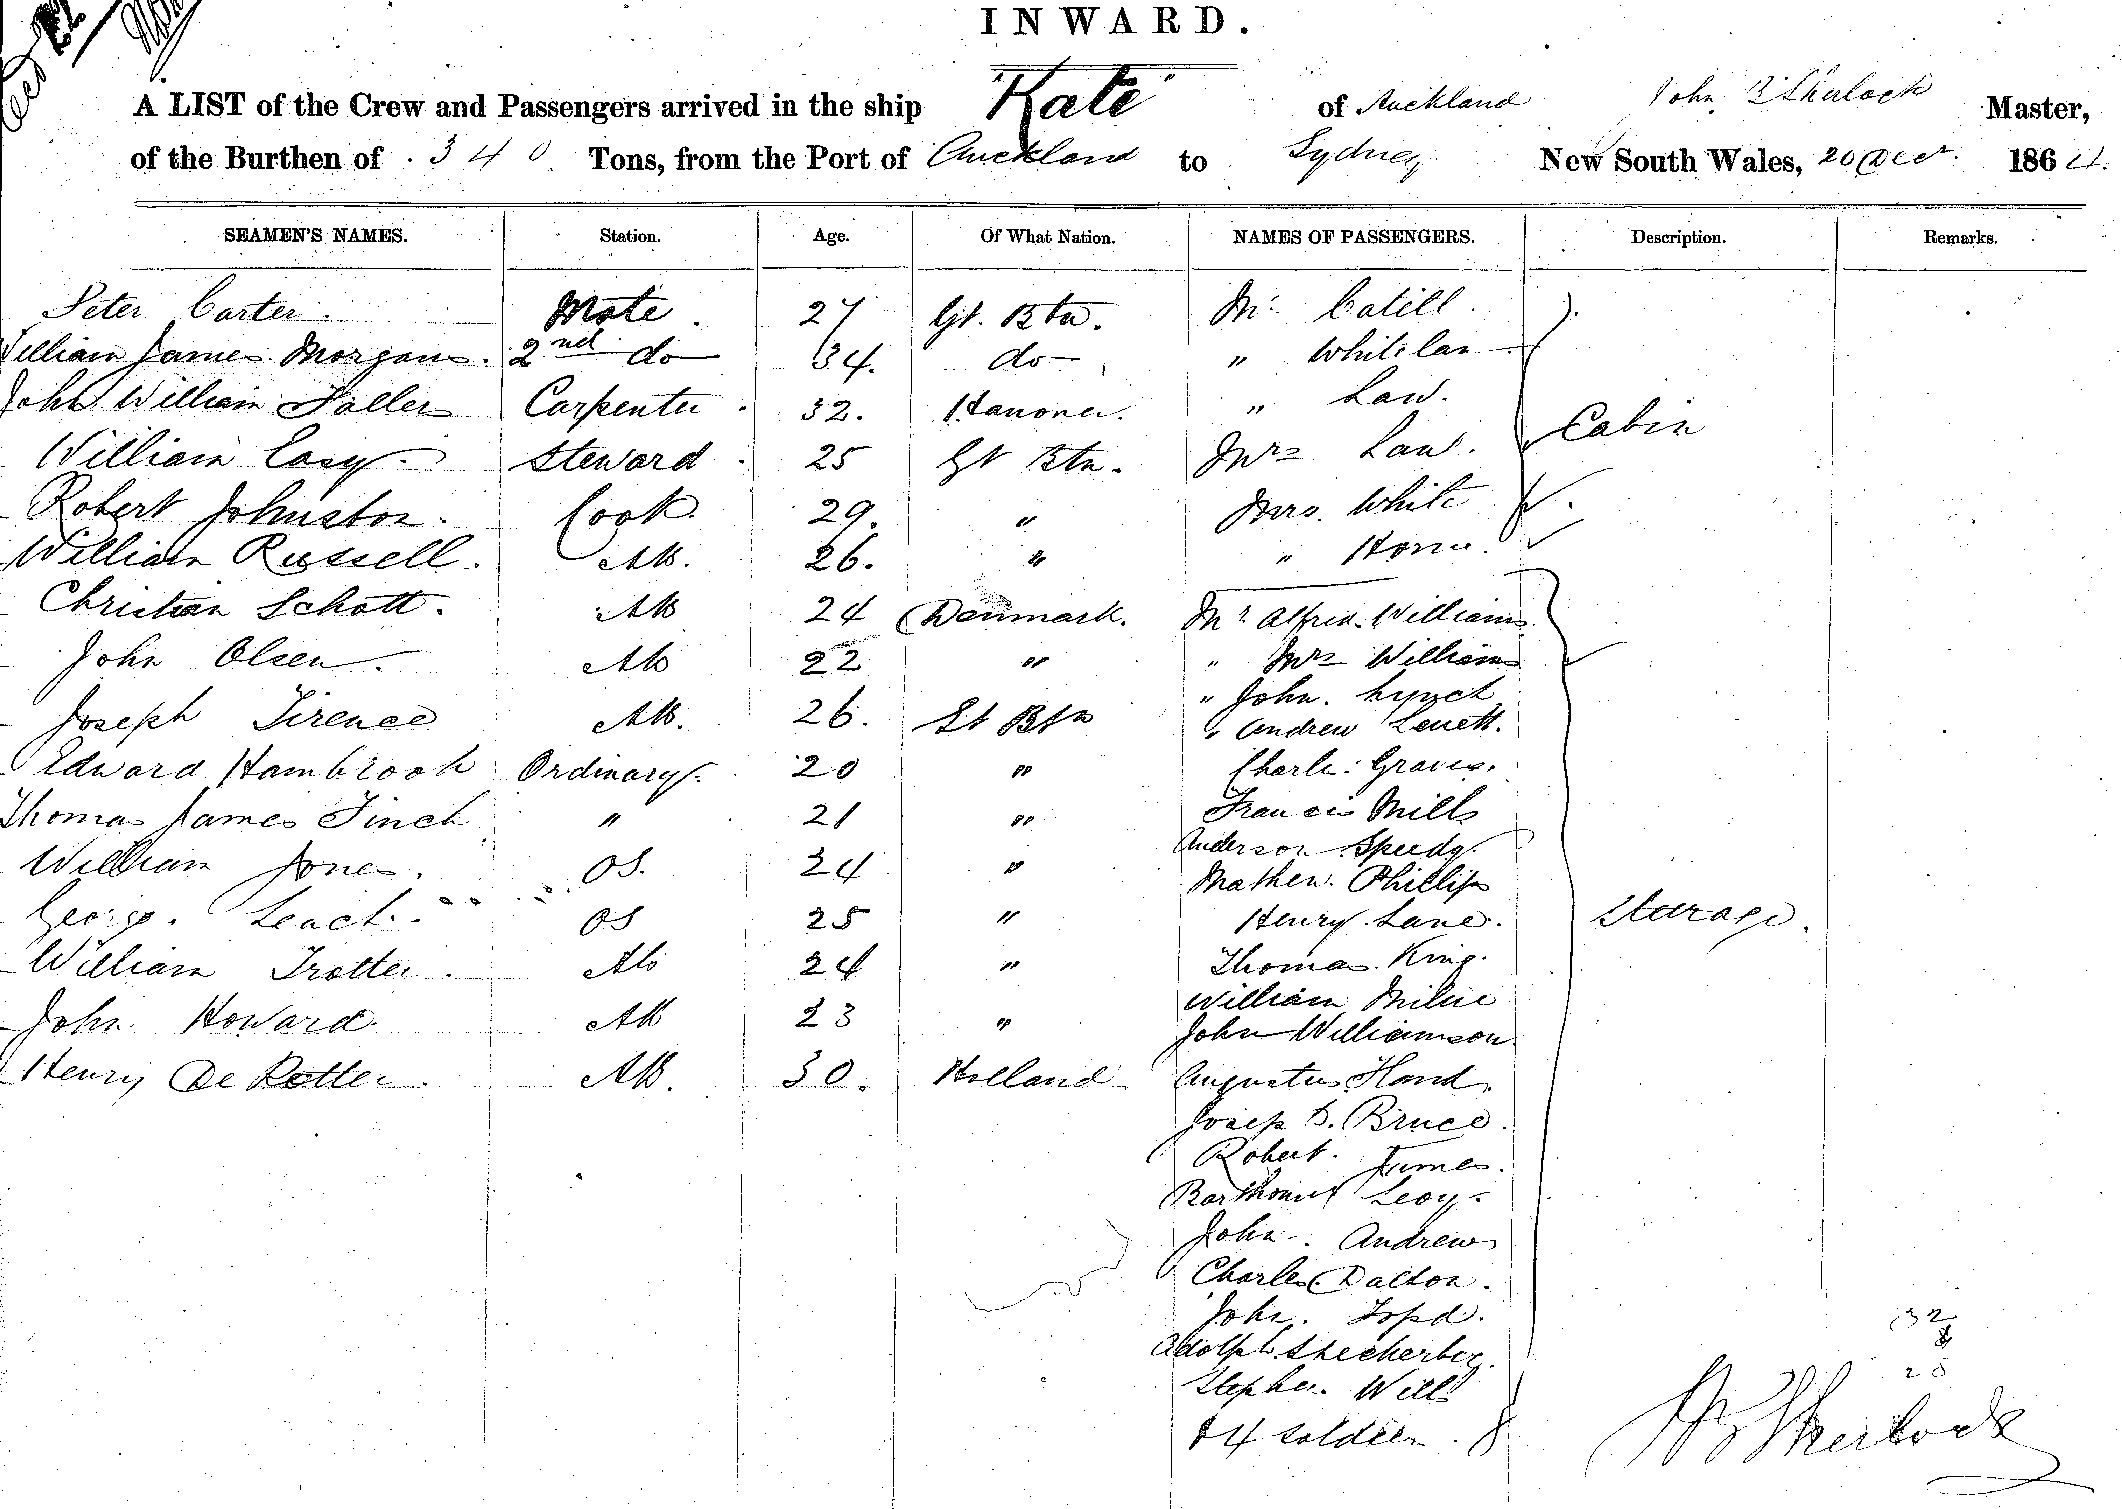 INWARD.
A LIST of the Crew and Passengers arrived in the ship "Kate" of Auckland John Sherlock Master,
of the Burthen of 340 Tons, from the Port of Auckland to Sydney New South Wales, 20 Decr. 1864.
SEAMEN'S NAMES. Station. Age. Of What Nation. NAMES OF PASSENGERS. Description. Remarks.
Peter Carter. Mate. 27 Gt. Btn. Mr. Catill.
William James Morgan. 2nd do 34. do " Whitelaw
John William Carpenter 32. Hanover. " Law.
William Easy. Steward 25 Gt Btn. Mrs Law. Cabin
Robert Johnston. Cook 29. " Mrs. White
William Russell. AB. 26. " " Horne.
Christian Schott. AB 24 Denmark. Mr Alfred Williams
John Olsen. AB 22 " " Mrs Williams
" John. Lynch
Joseph Tirence AB. 26. Gt Btn " Andrew Levett.
Edward Hambrook Ordinary. 20 " Charles Graves.
Thomas James Finch " 21 " Francis Mills
Anderson Speedy.
William Jones. OS. 24 " Mathew. Phillips
George. Leach. OS 25 " Henry Lane. Sturage.
William Trotter. AB 24 " Thomas King.
William Milne
John Howard. AB 23 " John Williamson
Henry De Rotter. AB. 30. Holland Augustus Hand.
Josep B. Bruce.
Robert. James.
Levy.
John. Andrews
Charles Dalton.
John.
Adolph
Stephen. Wills
4 soldiers.
32
28
Sherlock